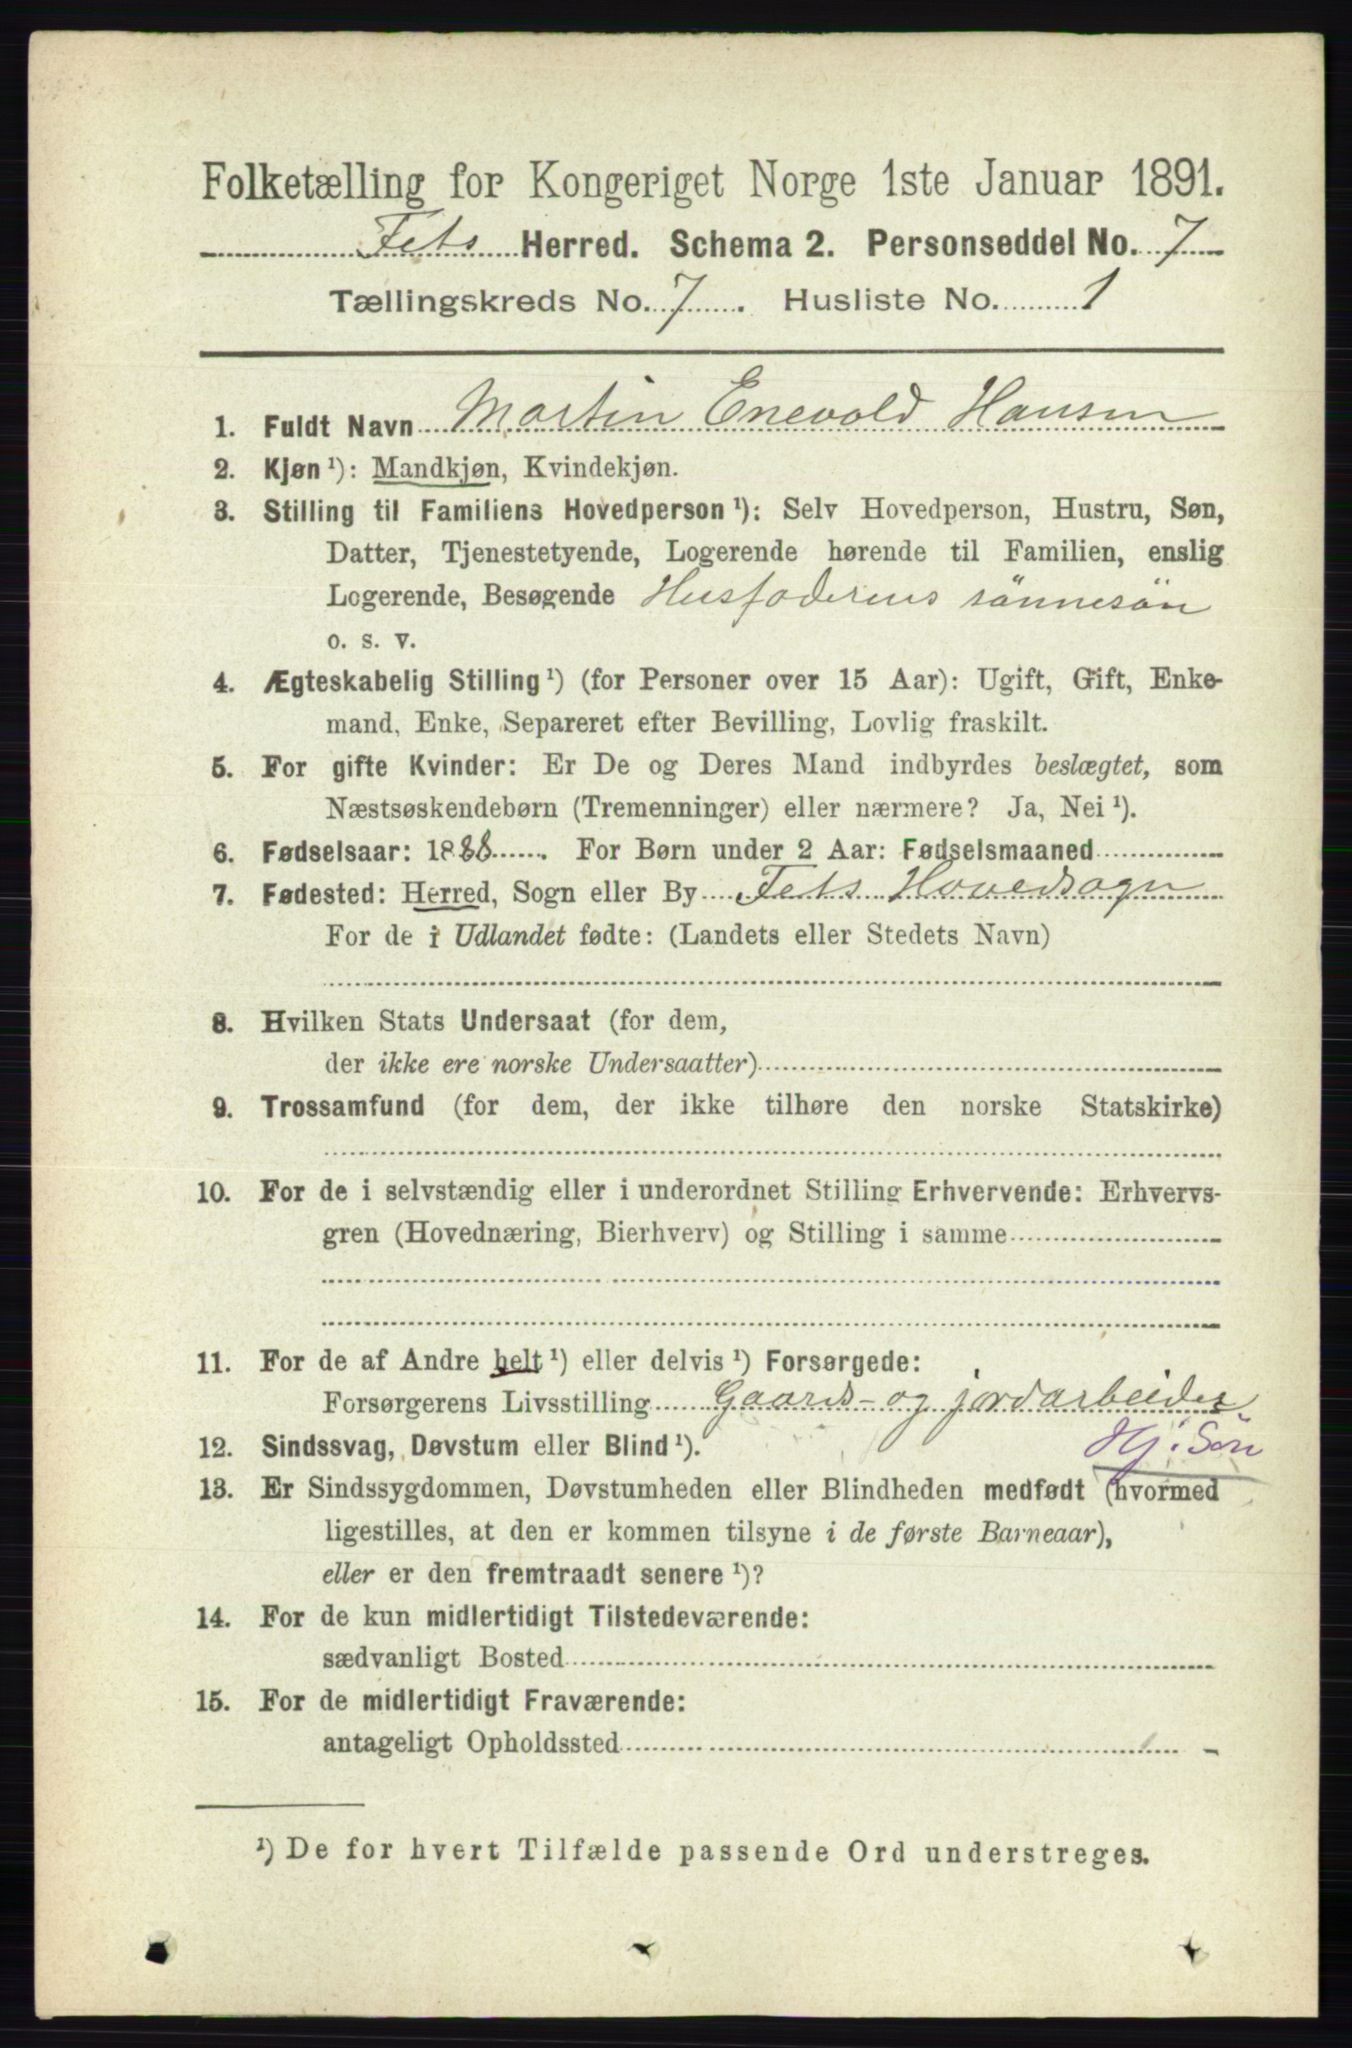 Folketælling for Kongeriget Norge 1ste Januar 1891.
Fets Herred. Schema 2. Personseddel No. 7
Tællingskreds No. 7. Husliste No. 1
1. Fuldt Navn Martin Enevold Hansen
2. Kjøn ¹): Mandkjøn, Kvindekjøn.
3. Stilling til Familiens Hovedperson ¹): Selv Hovedperson, Hustru, Søn,
Datter, Tjenestetyende, Logerende hørende til Familien, enslig
Logerende, Besøgende Husfaderens sønnesøn
o. s. v.
4. Ægteskabelig Stilling ¹) (for Personer over 15 Aar): Ugift, Gift, Enke-
mand, Enke, Separeret efter Bevilling, Lovlig fraskilt.
5. For gifte Kvinder: Er De og Deres Mand indbyrdes beslægtet, som
Næstsøskendebørn (Tremenninger) eller nærmere? Ja, Nei ¹).
6. Fødselsaar: 1888. For Børn under 2 Aar: Fødselsmaaned
7. Fødested: Herred, Sogn eller By Fets Hovedsogn
For de i Udlandet fødte: (Landets eller Stedets Navn)
8. Hvilken Stats Undersaat (for dem,
der ikke ere norske Undersaatter)
9. Trossamfund (for dem, der ikke tilhøre den norske Statskirke)
10. For de i selvstændig eller i underordnet Stilling Erhvervende: Erhvervs-
gren (Hovednæring, Bierhverv) og Stilling i samme
11. For de af Andre helt ¹) eller delvis ¹) Forsørgede:
Forsørgerens Livsstilling Gaards- og jordarbeider
12. Sindssvag, Døvstum eller Blind ¹). Hj. Søn
13. Er Sindssygdommen, Døvstumheden eller Blindheden medfødt (hvormed
ligestilles, at den er kommen tilsyne i de første Barneaar),
eller er den fremtraadt senere ¹)?
14. For de kun midlertidigt Tilstedeværende:
sædvanligt Bosted
15. For de midlertidigt Fraværende:
antageligt Opholdssted
¹) De for hvert Tilfælde passende Ord understreges.